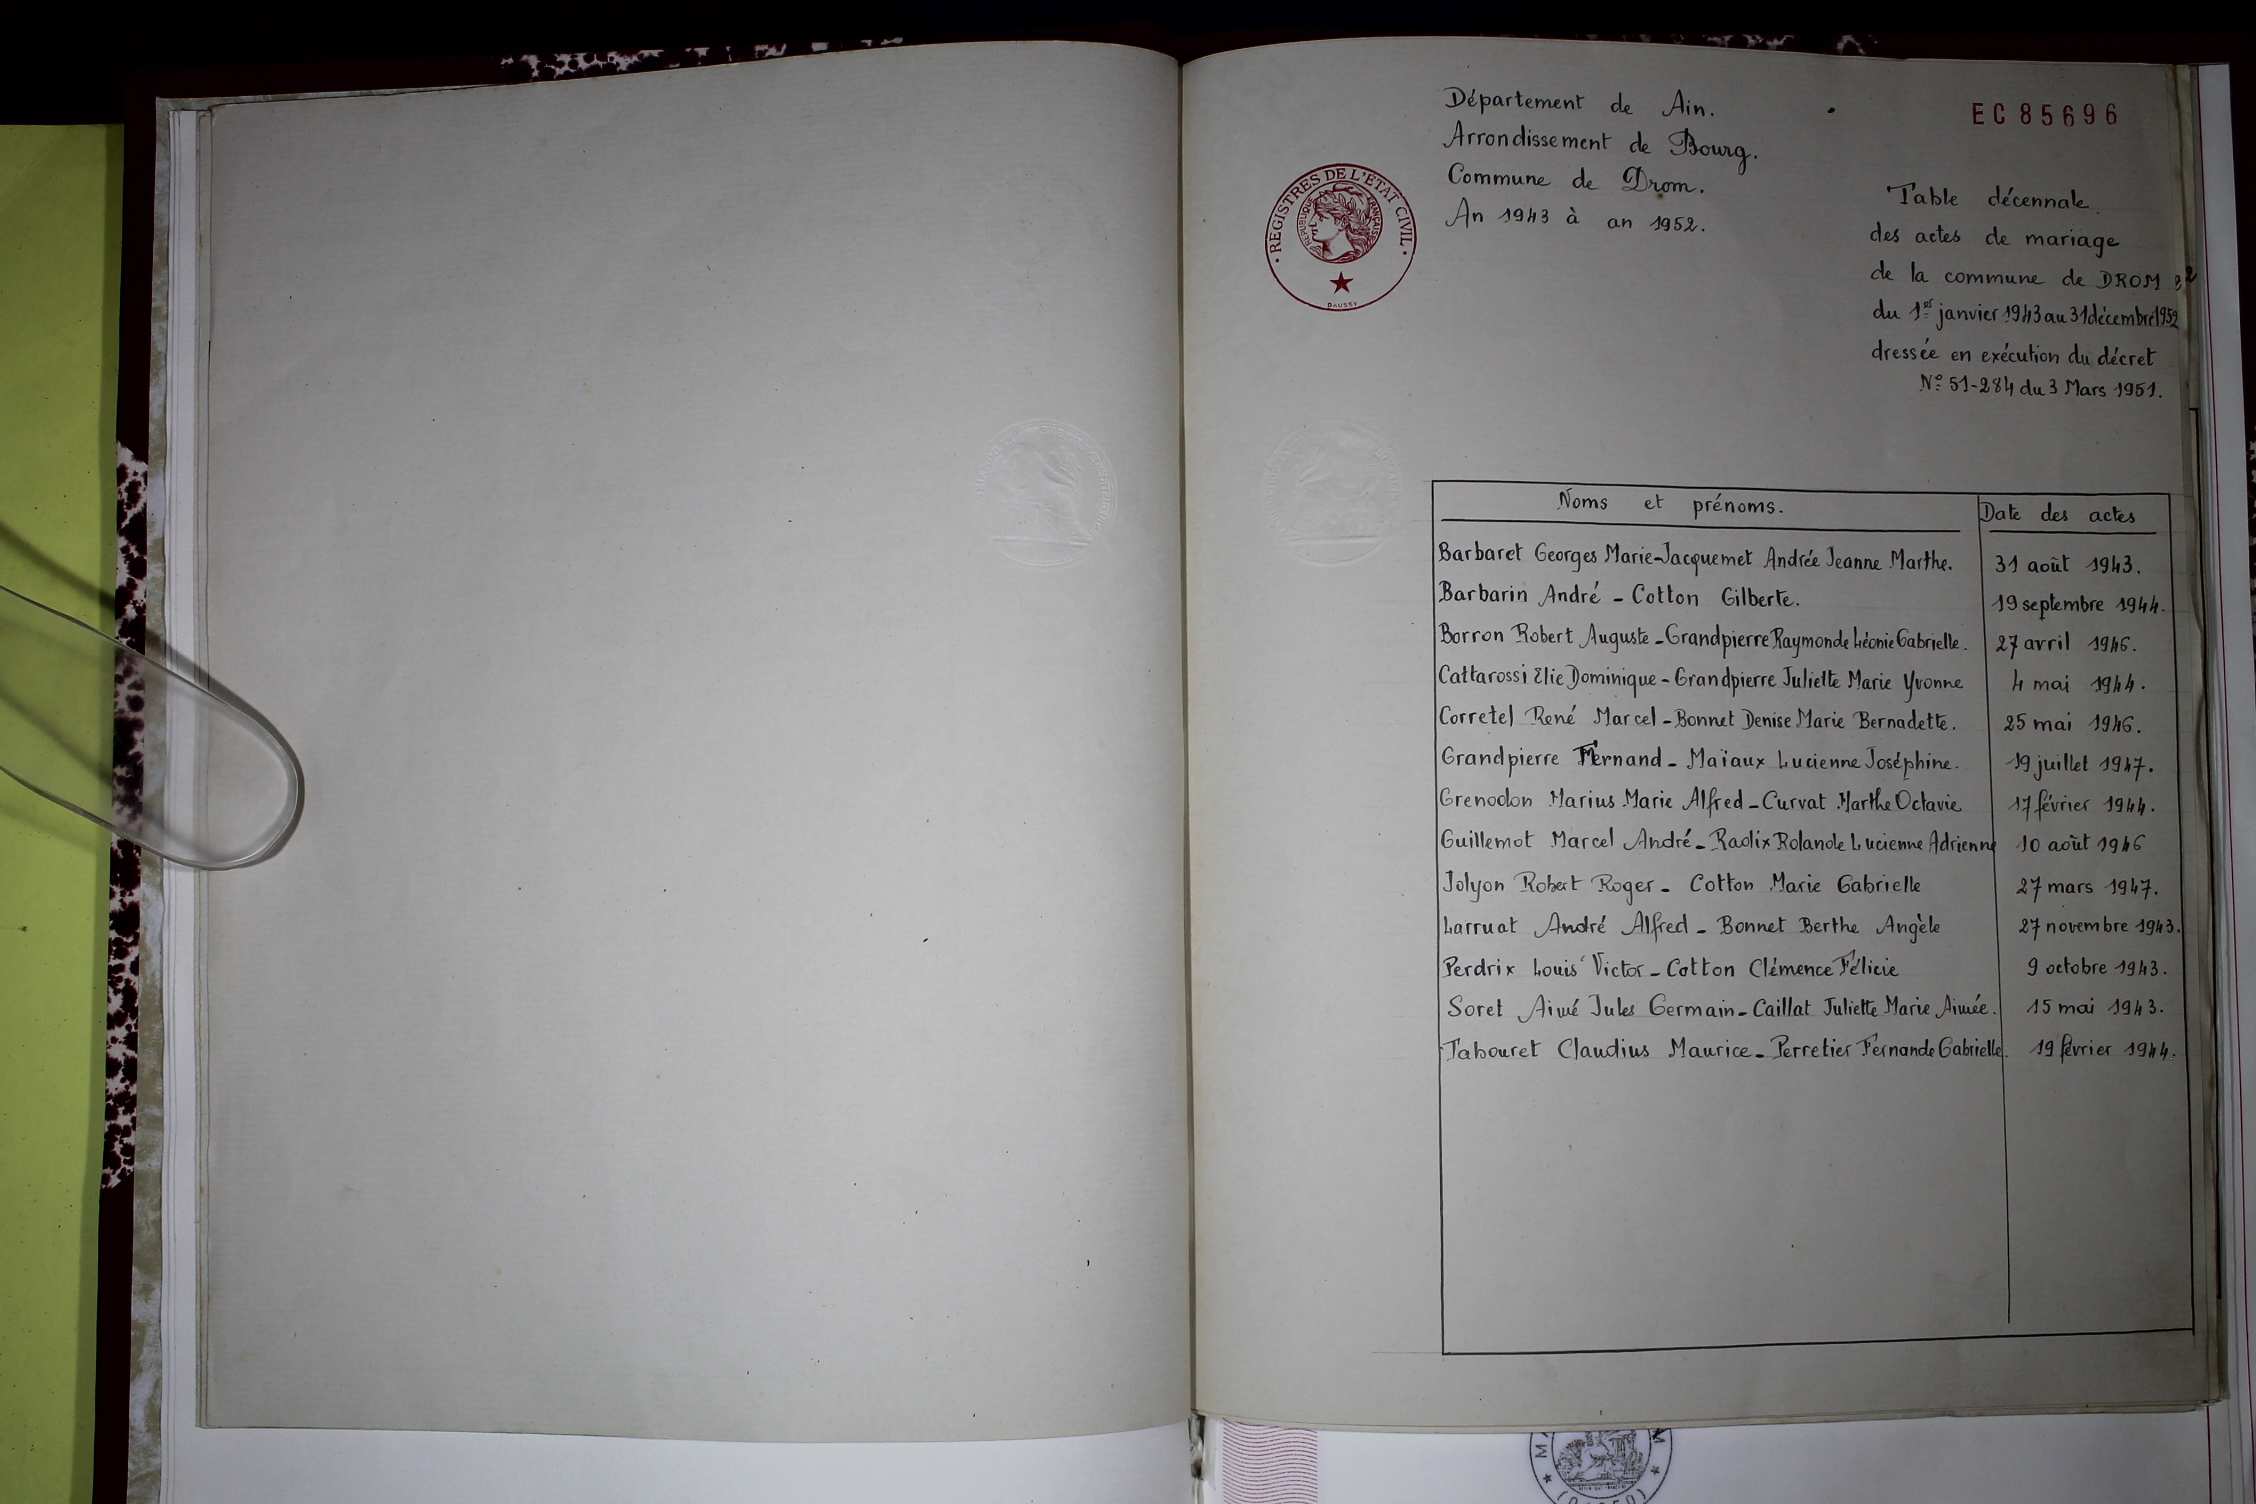 Département de Ain.
Arrondissement de Bourg.
Commune de Drom.
An 1943 à an 1952.
EC 85696
REGISTRES DE L'ÉTAT CIVIL
RÉPUBLIQUE FRANÇAISE
DAUSSY
Table décennale
des actes de mariage
de la commune de DROM
du 1er janvier 1943 au 31 décembre 1952
dressée en exécution du décret
No 51-284 du 3 Mars 1951.
Noms et prénoms. Date des actes
Barbaret Georges Marie-Jacquemet Andrée Jeanne Marthe. 31 août 1943.
Barbarin André - Cotton Gilberte. 19 septembre 1944.
Borron Robert Auguste - Grandpierre Raymonde Léonie Gabrielle. 27 avril 1946.
Cattarossi Elie Dominique - Grandpierre Juliette Marie Yvonne 4 mai 1944.
Corretel René Marcel - Bonnet Denise Marie Bernadette. 25 mai 1946.
Grandpierre Fernand - Maïaux Lucienne Joséphine. 19 juillet 1947.
Grenodon Marius Marie Alfred - Curvat Marthe Octavie 17 février 1944.
Guillemot Marcel André - Radix Rolande Lucienne Adrienne 10 août 1946
Jolyon Robert Roger - Cotton Marie Gabrielle 27 mars 1947.
Larruat André Alfred - Bonnet Berthe Angèle 27 novembre 1943.
Perdrix Louis Victor - Cotton Clémence Félicie 9 octobre 1943.
Soret Aimé Jules Germain - Caillat Juliette Marie Aimée. 15 mai 1943.
Tabouret Claudius Maurice - Perretier Fernande Gabrielle. 19 février 1944.